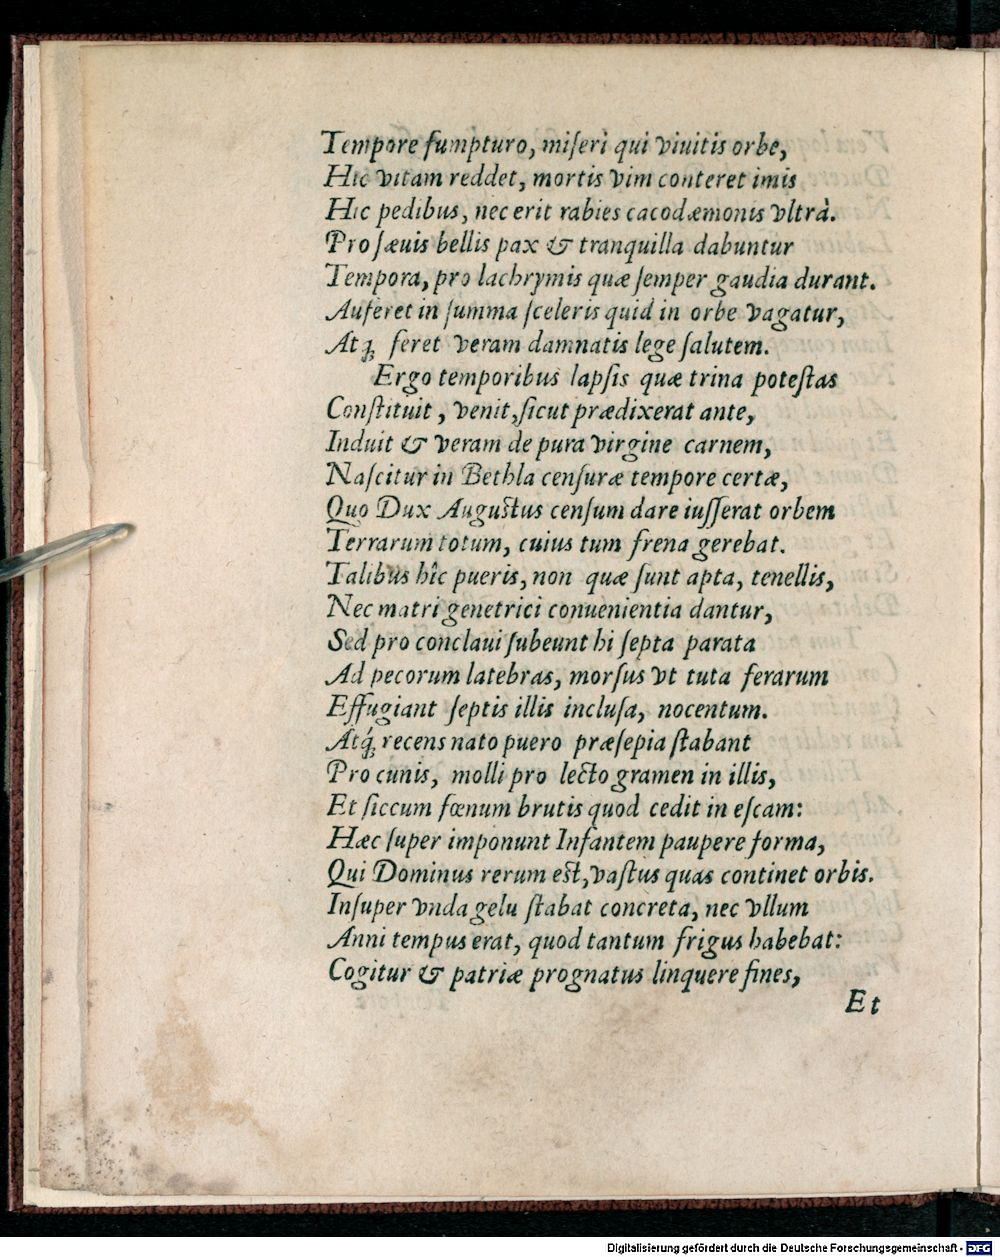 Tempore ſumpturo, miſeri qui viuitis orbe,
Hic vitam reddet, mortis vim conteret imis
Hic pedibus, nec erit rabies cacodæmonis vltrà.
Pro ſæuis bellis pax & tranquilla dabuntur
Tempora, pro lachrymis quæ ſemper gaudia durant.
Auferet in ſumma ſceleris quid in orbe vagatur,
Atq́; feret veram damnatis lege ſalutem.
Ergo temporibus lapſis quæ trina poteſtas
Conſtituit, venit, ſicut prædixerat ante,
Induit & veram de pura virgine carnem,
Naſcitur in Bethla cenſuræ tempore certæ,
Quo Dux Auguſtus cenſum dare iuſſerat orbem
Terrarum totum, cuius tum frena gerebat.
Talibus hîc pueris, non quæ ſunt apta, tenellis,
Nec matri genetrici conuenientia dantur,
Sed pro conclaui ſubeunt hi ſepta parata
Ad pecorum latebras, morſus vt tuta ferarum
Effugiant ſeptis illis incluſa, nocentum.
Atq́; recens nato puero præſepia ſtabant
Pro cunis, molli pro lecto gramen in illis,
Et ſiccum fœnum brutis quod cedit in eſcam:
Hæc ſuper imponunt Infantem paupere forma,
Qui Dominus rerum eſt, vaſtus quas continet orbis.
Inſuper vnda gelu ſtabat concreta, nec vllum
Anni tempus erat, quod tantum frigus habebat:
Cogitur & patriæ prognatus linquere fines,
Et
Digitalisierung gefördert durch die Deutsche Forschungsgemeinschaft - DFG